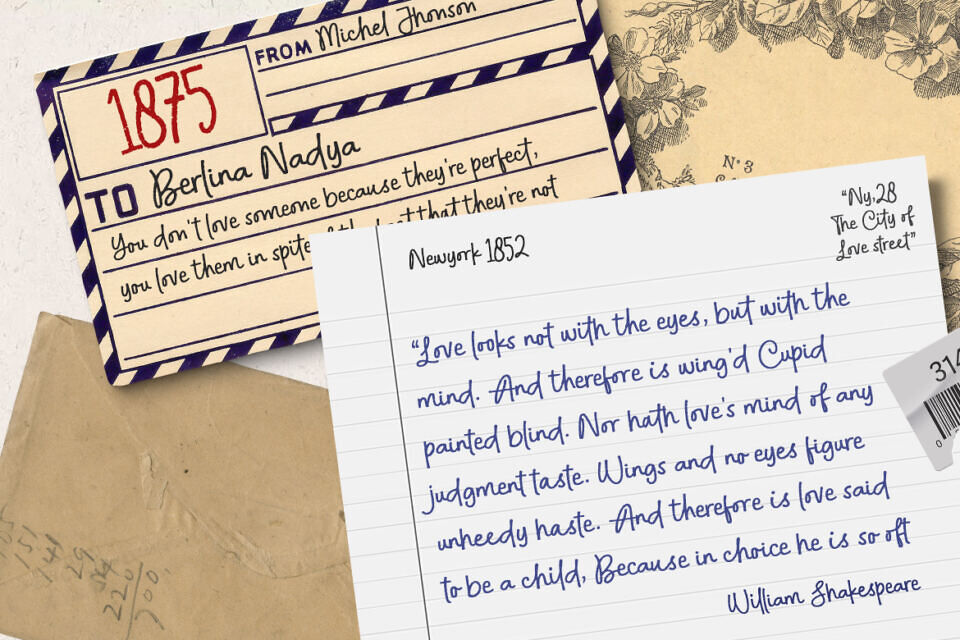 FROM Michel Jhonson
1875
TO Berlina Nadya
You don't love someone because they're perfect,
you love them in spite that they're not
N° 3
Newyork 1852
"Ny,28
The City of
Love street"
"Love looks not with the eyes, but with the
mind. And therefore is wing'd Cupid
painted blind. Nor hath love's mind of any
judgment taste. Wings and no eyes figure
unheedy haste. And therefore is love said
to be a child, Because in choice he is so oft
William Shakespeare
314
0
29
220